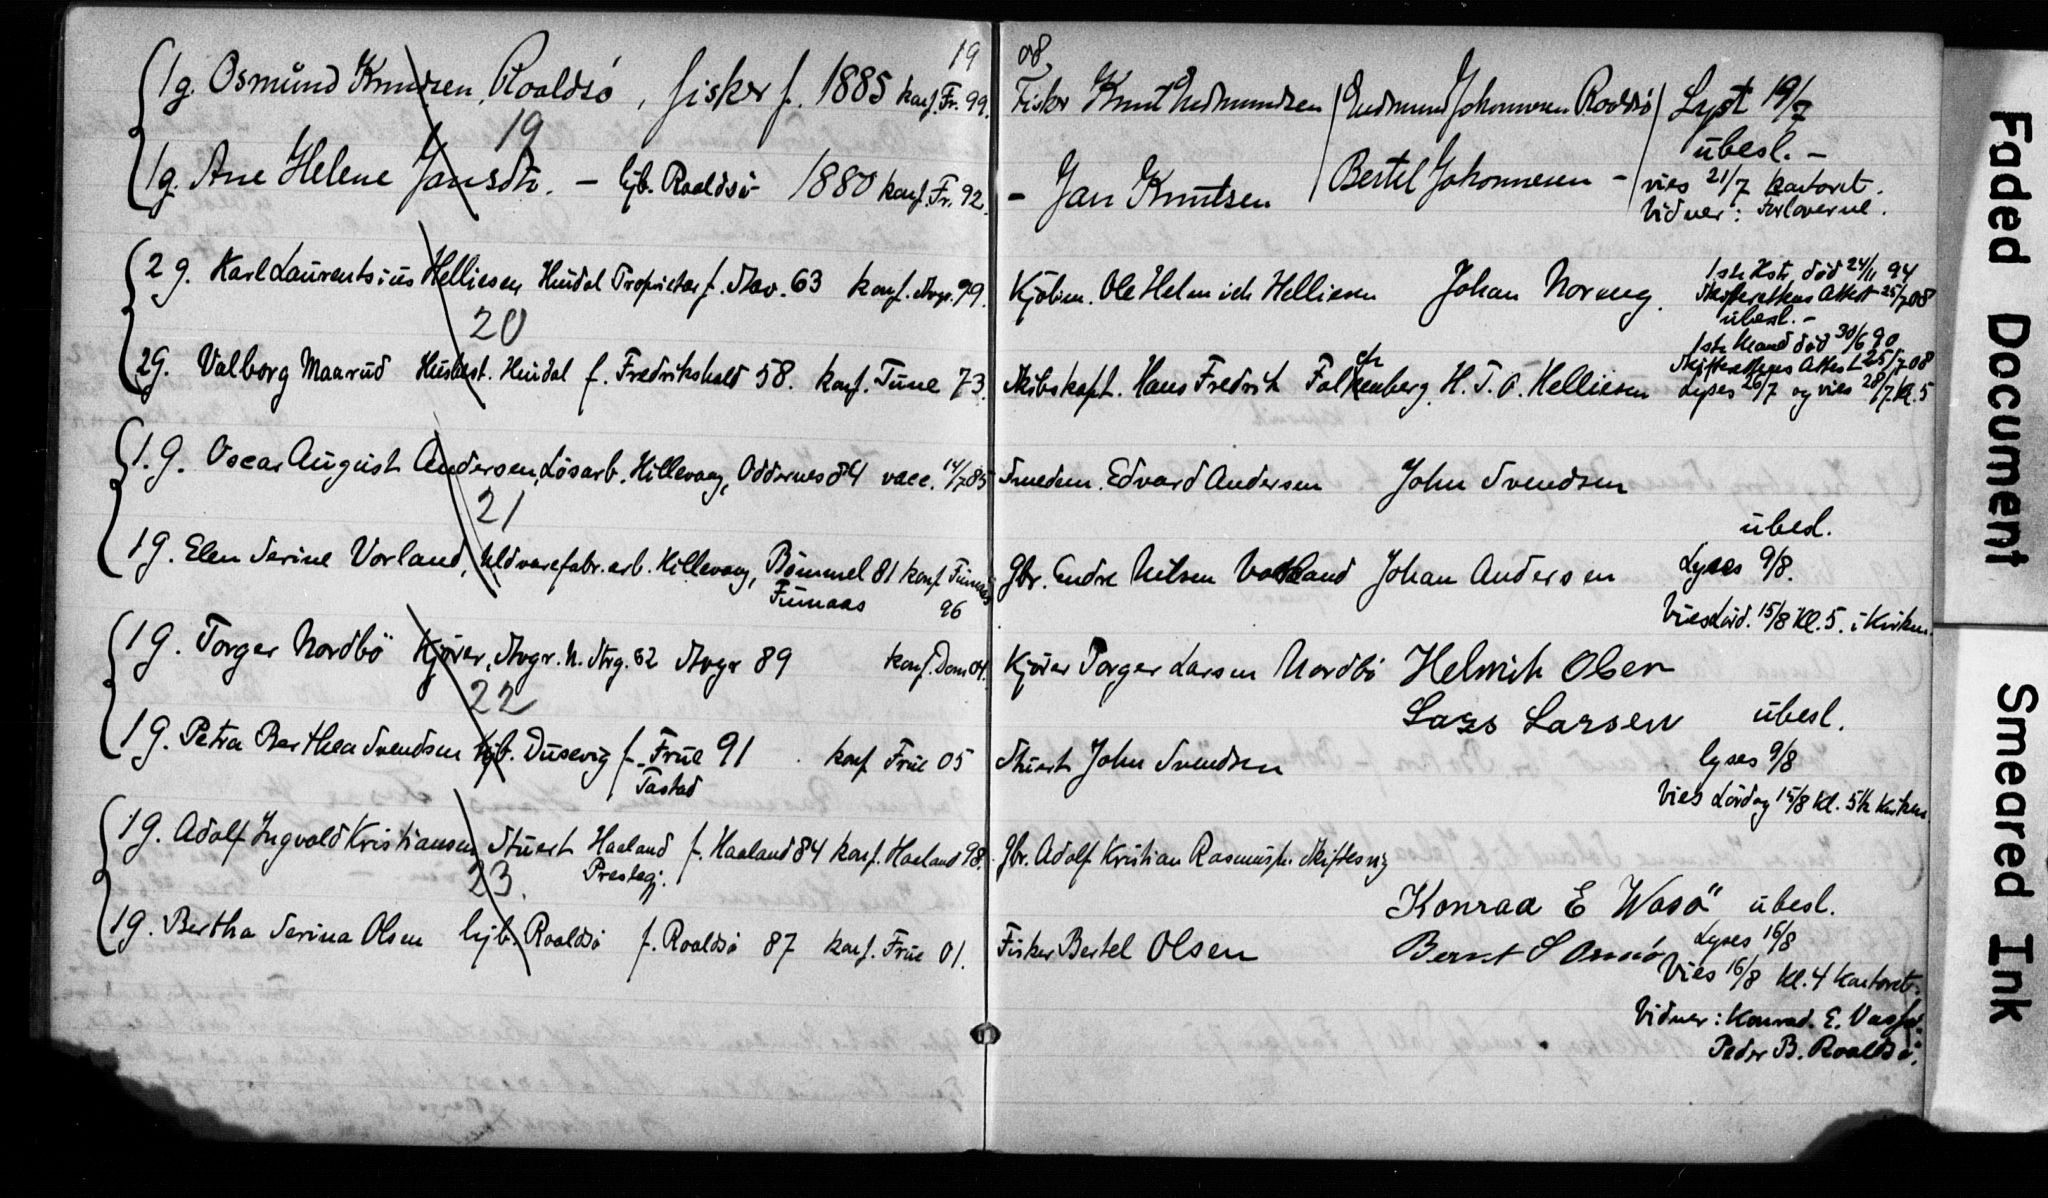 19 08,
1g. Osmund Knudsen, Roaldsö, fisker f. 1885 konf. Fr. 99. Fisker Knut Gudmundsen Gudmund Johannesen Roaldsö Lyst 19/7
19
ubesl. –
1g. Ane Helene Jansdtr. – hjb. Roaldsö 1880 konf. Fr. 92. – Jan Knutsen Bertel Johannesen – vies 21/7 kontoret.
Vidner: Forloverne.
2g. Karl Laurentsius Helliesen Hindal Proprietær f. Stav. 63 konf. Stvgr. 79. Kjöbm. Ole Helmich Helliesen Johan Noreng. 1ste Hstr. död 24/11 94
Skifterettens Attest 25/7 08
20
ubesl. –
1ste Mand död 30/6 90
Skifterettens Attest 25/7 08
2g. Valborg Maarud Husbest. Hindal f. Fredrikshald 58. konf. Tune 73. Skibskapt. Hans Fredrik Falkenberg H. T. O. Helliesen Lyses 26/7 og vies 28/7 kl. 5
1.g. Oscar August Andersen, Løsarb. Hillevaag, Oddernes 84 vacc. 14/7 85 Smedem. Edvard Andersen John Svendsen
21
ubesl.
1g. Elen Serine Vorland, Uldvarefabr. arb. Hillevaag, Bömmel 81 konf. Finnaas Gbr. Endre Nilsen Vorland Johan Andersen Lyses 9/8.
Finnaas 96
Vies Lörd. 15/8 Kl. 5. i Kirken.
1g. Torger Nordbö Kjörer, Stvgr. N. Strg. 62 Stvgr 89 konf. Dom 04. Kjörer Torger Larsen Nordbö Helmich Olsen
22
Lars Larsen ubesl.
1g. Petra Berthea Svendsen hjb. Dusevig f. Frue 91 konf Frue 05 Stuert John Svendsen lyses 9/8
Tastad
Vies Lördag 15/8 kl. 5½ Kirken
1g. Adolf Ingvald Kristiansen Stuert Haaland f. Haaland 84 konf. Haaland 98. Gbr. Adolf Kristian Rasmusen Skiftesvig
Prestegj.
23.
Konrad E Wasö ubesl.
1g. Bertha Serina Olsen hjb. Roaldsö f. Roaldsö 87 konf. Frue 01. Fisker Bertel Olsen Bernt S Lyses 16/8
Vies 16/8 kl. 4 kontoret.
Vidner: Konrad. E. Vassö.
Peder B. Roaldsö.
Faded Document
Smeared Ink